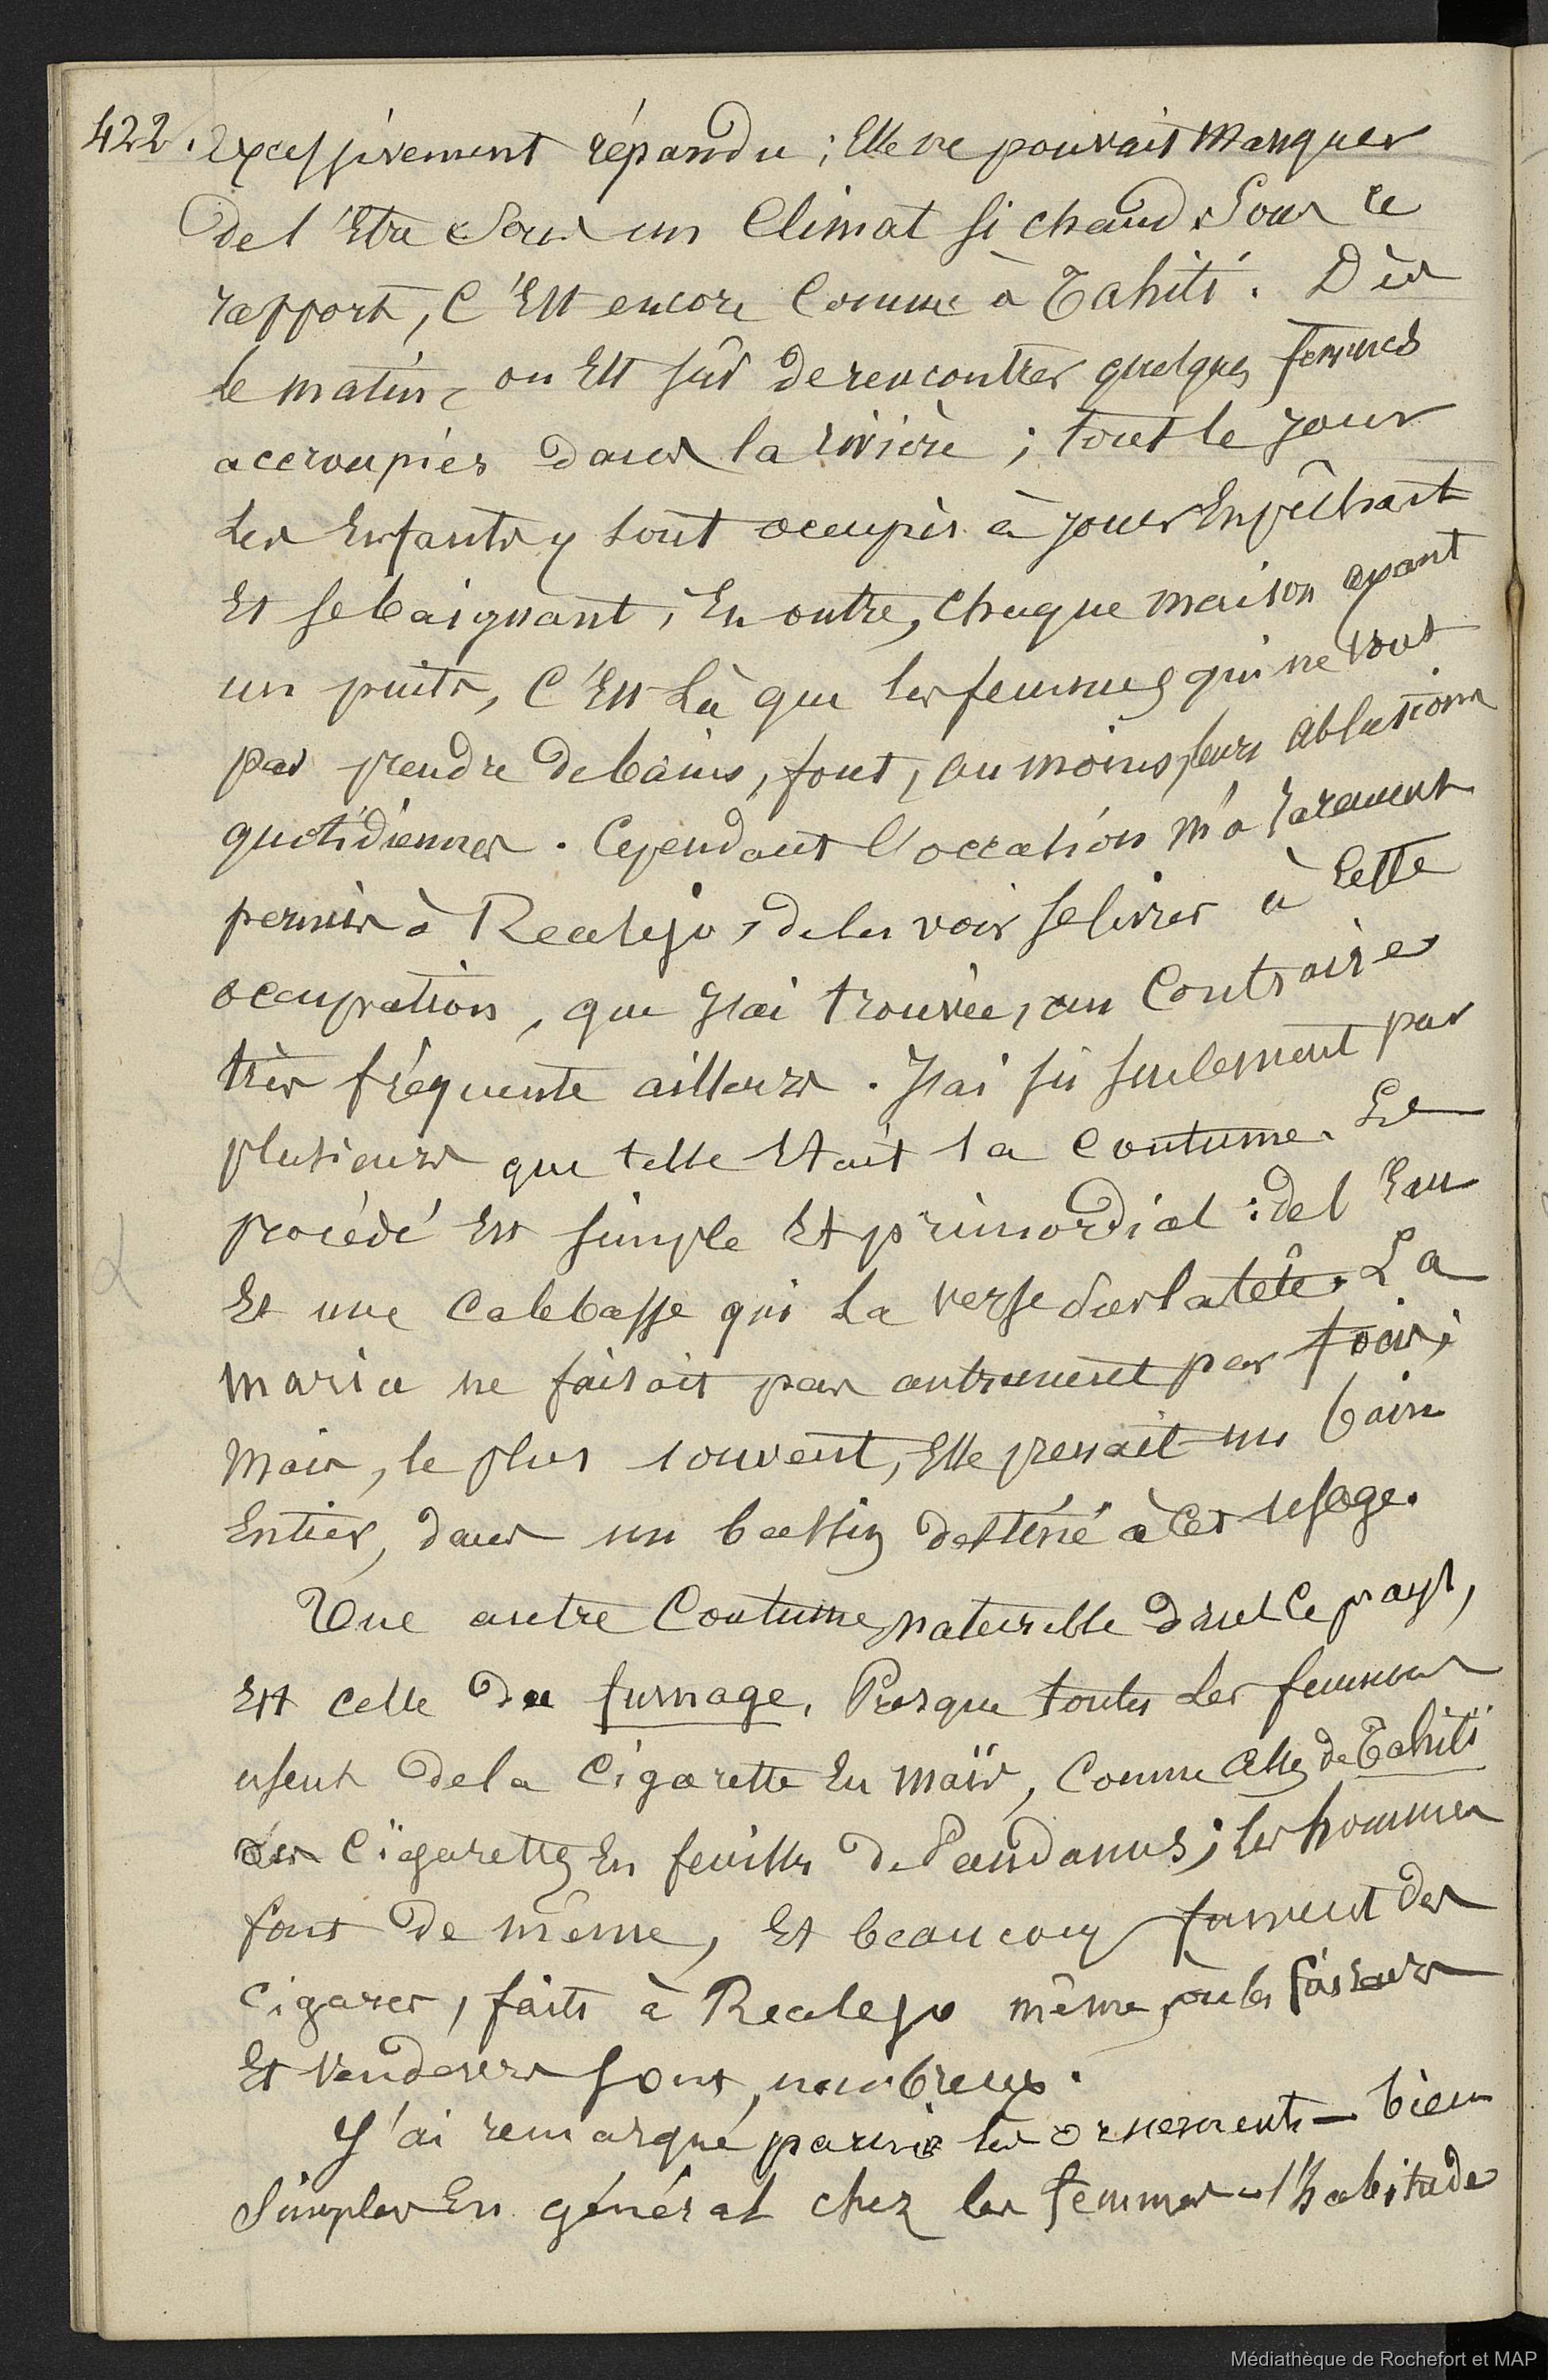 422. Excessivement répandu ; Elle ne pouvait Manquer
de l'Etre Sous un Climat si chaud. Sous ce
rapport, C'Est encore Comme à Tahiti. Dès
le matin, on Est sûr de rencontrer quelques femmes
accroupies dans la rivière ; tout le jour
Les Enfants y sont occupés à jouer En pêchant
Et se baignant, En outre, Chaque maison ayant
un puits, C'Est Là que les femmes qui ne vont
pas prendre de bains, font, au moins, leurs ablutions
quotidiennes. Cependant l'occasion m'a rarement
permis à Realejo, de les voir se livrer à Cette
occupation, que J'ai trouvée, au Contraire
très fréquente ailleurs. J'ai su seulement par
plusieurs que telle Etait la Coutume. Le
procédé Est simple Et primordial : de l'Eau
Et une Calebasse qui La verse sur la tête. La
maria ne faisait pas autrement parfois ;
Mais, le plus souvent, Elle prenait un bain
Entier, dans un bassin destiné à Cet usage.
Une autre Coutume, naturelle dans Ce pays,
Est celle du fumage. Presque toutes Les femmes
usent de la Cigarette En maïs, Comme Celles de Tahiti
des Cigarettes En feuilles de Pandanus ; les hommes
font de même, Et beaucoup fument des
Cigares, faits à Realejo même, où les faiseurs
Et Vendeurs sont nombreux.
J'ai remarqué parmi les ornements — bien
Simples En général chez les femmes — l'habitude
Médiathèque de Rochefort et MAP